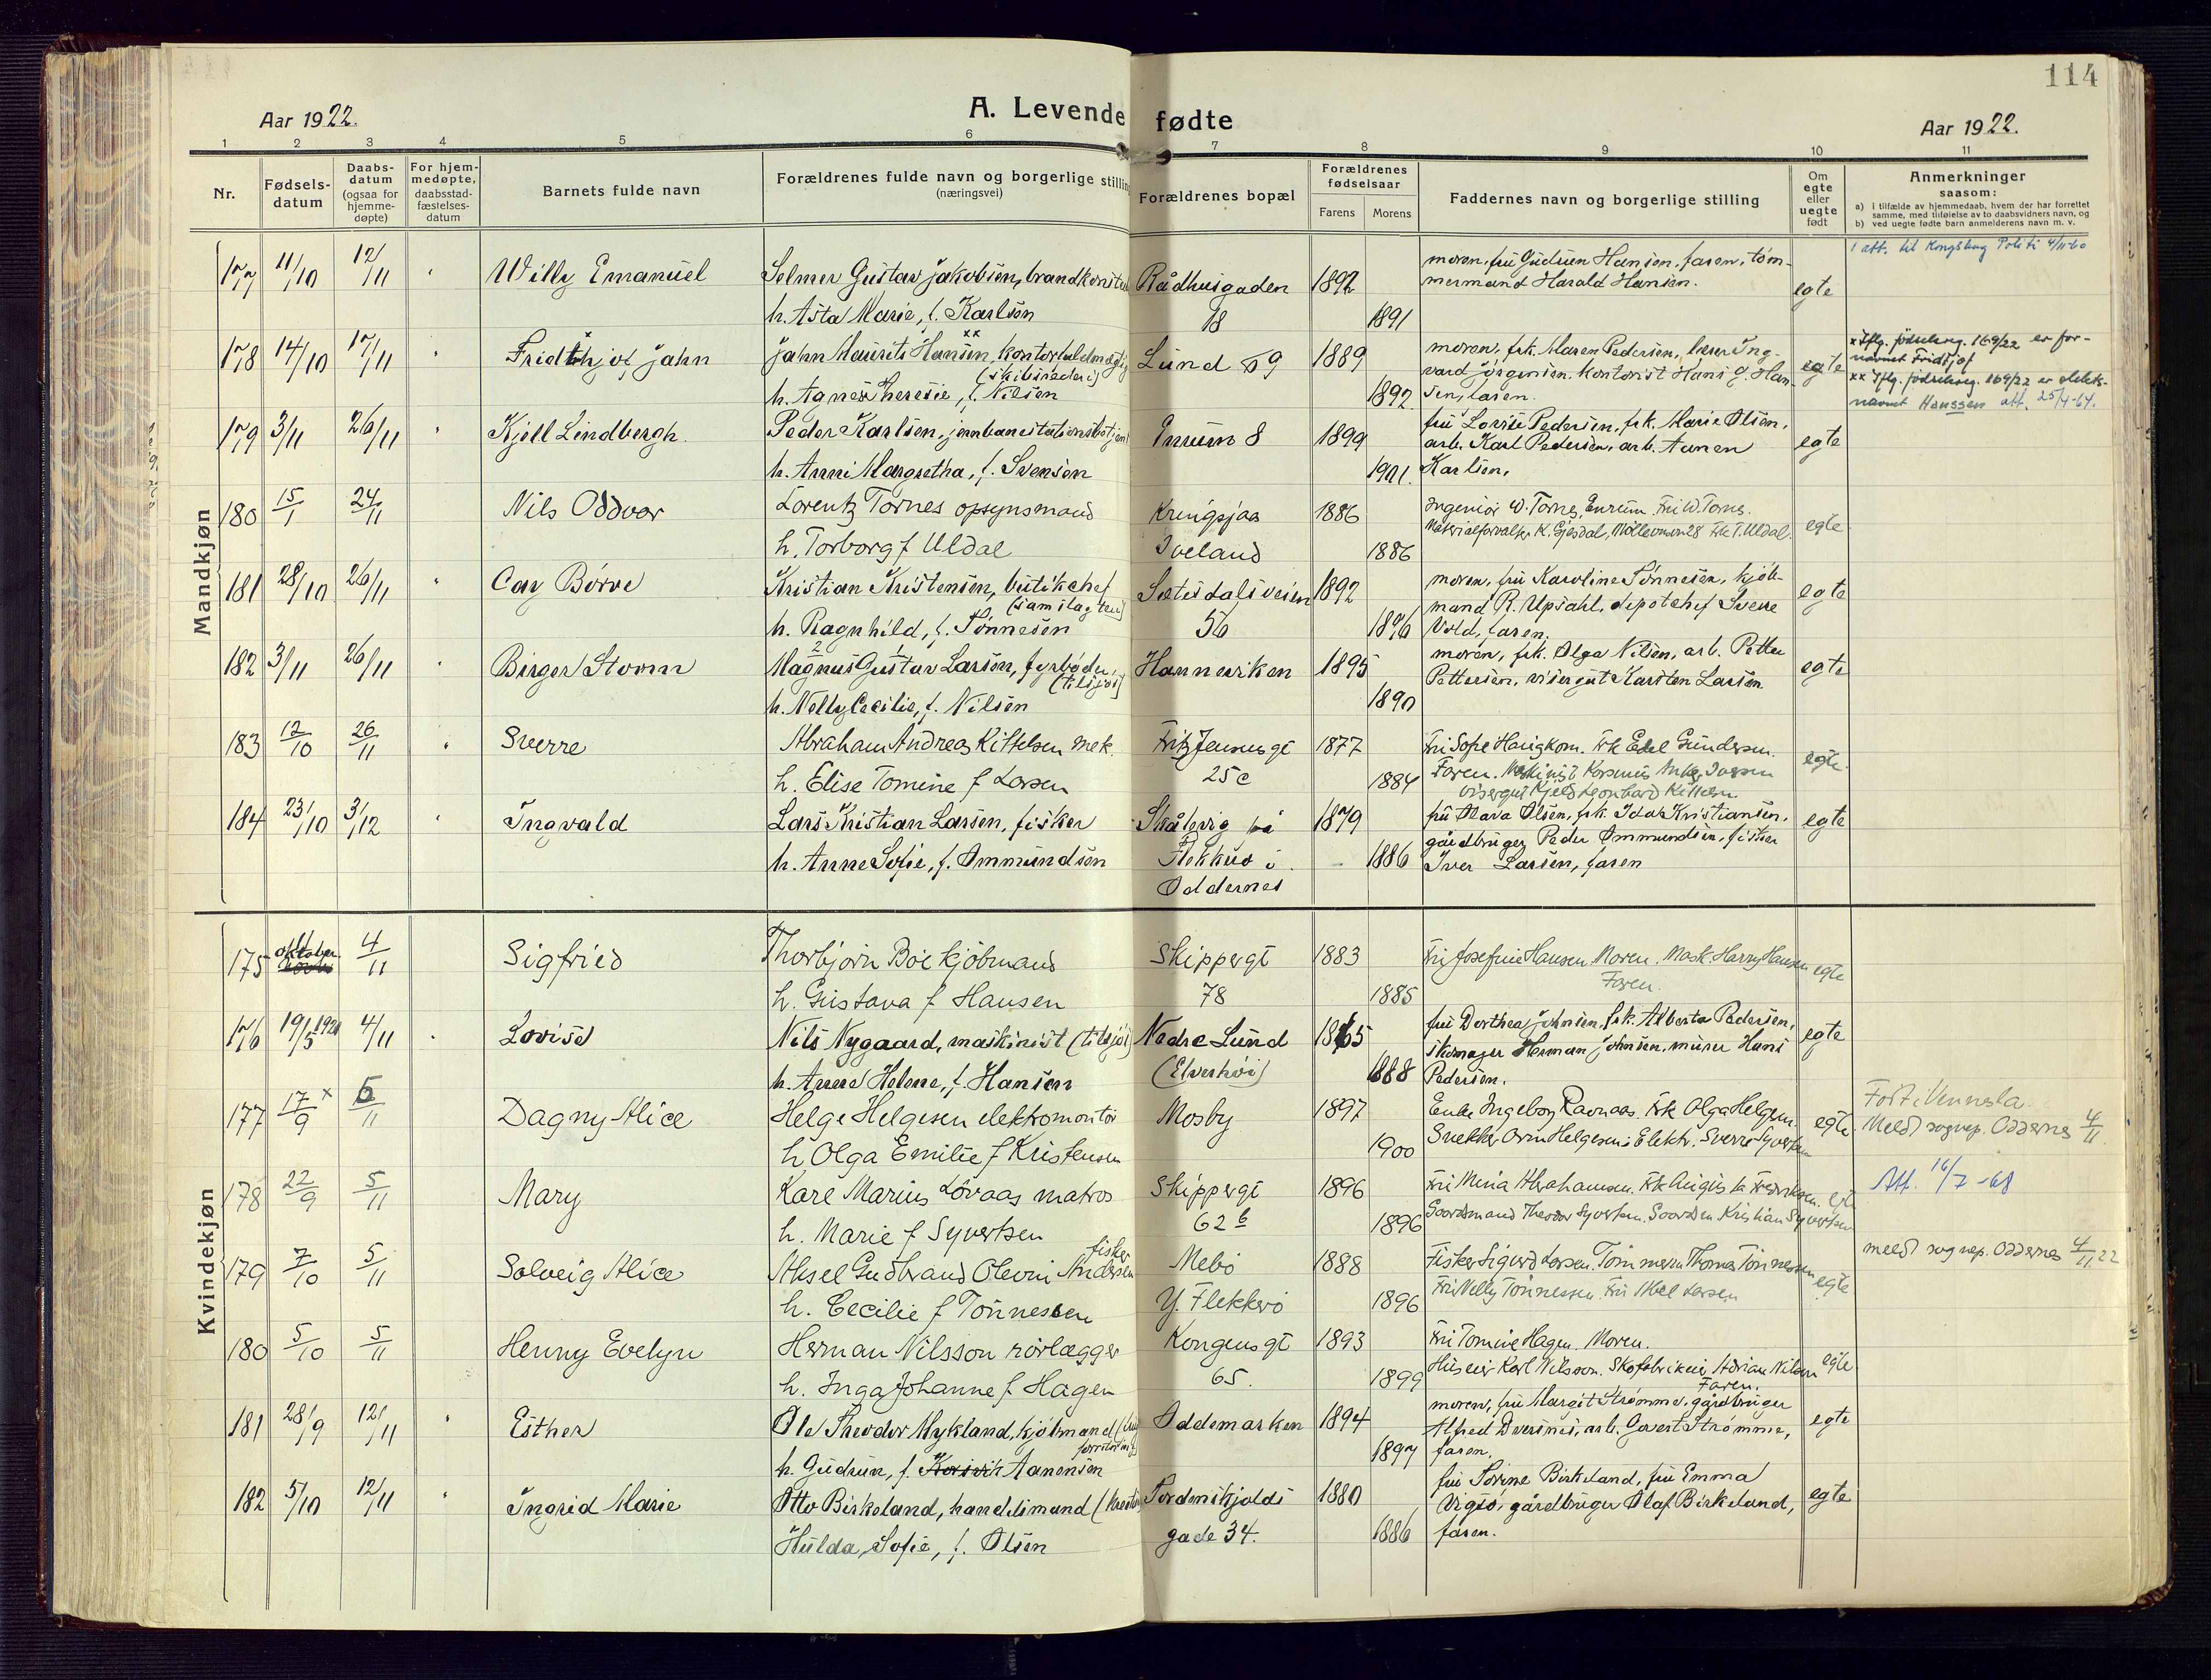 114
Aar 1922.
A. Levende fødte
Aar 1922.
1 2 3 4 5 6 7 8 9 10 11
Nr.
Fødsels-datum
Daabs-datum (ogsaa for hjemme-døpte)
For hjem-medøpte, daabsstad-fæstelses-datum
Barnets fulde navn
Forældrenes fulde navn og borgerlige stilling (næringsvei)
Forældrenes bopæl
Forældrenes fødselsaar
Farens Morens
Faddernes navn og borgerlige stilling
Om egte eller uegte født
Anmerkninger saasom:
a) i tilfælde av hjemmedaab, hvem der har forrettet samme, med tilføielse av to daabsvidners navn, og
b) ved uegte fødte barn anmelderens navn m. v.
Mandkjøn
177 11/10 12/11 Willy Emanuel Selmer Gustav Jakobsen, brandkonstabel Rådhusgaden 1892 moren, fru Gudrun Hansen, faren, tøm- egte 1 att. til Kongsberg Politi
mermand Harald Hansen.
h. Asta Marie, f. Karlsen 18 1891
178 14/10 17/11 Fridthjof Jahn Jahn Maurits Hansen, kontorfuldmægtig Lund 69 1889 moren, frk. Maren Pedersen, Ing- egte x Iflg. fødselsreg. 169/22 er for-
(skibsrederi) vard Jørgensen, kontorist Hans J. Han- navnet Fridtjof
h. Agnes Theresie, f. Nilsen 1892. sen, faren. xx Iflg. fødselsreg. 169/22 er slekts-
navnet Hanssen att. 25/4-64.
179 3/11 26/11 Kjell Lindbergh Peder Karlsen, jernbanestationsbetjent Enrum 8 1899 fru Lovise Pedersen, frk. Marie Olsen, egte
arb. Karl Pedersen, arb. Aanen
h. Anni Margretha, f. Svensen 1901. Karlsen.
180 15/1 24/11 Nils Oddvar Lorentz Tornes opsynsmand Kringsjaa 1886 Ingeniør W. Tornes, Enrum. Fru W. Tornes. egte
Materialforvalter K. Gjesdal, Møllevannsv 28 Frk T. Uldal.
h. Torborg f Uldal Iveland 1886
181 28/10 26/11 Cay Børve Kristian Kristensen, butikchef Sætesdalsveien 1892 moren, fru Karoline Tønnesen, kjøb- egte
(samslag ) mand R. Upsahl, depotchef Sverre
h. Ragnhild, f. Tønnesen 56 1896 Vold, faren.
182 3/11 26/11 Birger Storm Magnus Gustav Larsen, fyrbøder, Hanneviken 1895 moren, frk. Olga Nilsen, arb. Petter egte
(tilsjøs) Pettersen, visergut Karsten Larsen
h. Nelly Cecilie, f. Nilsen 1890
183 12/10 26/11 Sverre Abraham Andreas Kittelsen mek. Fritz Jensensgt 1877 Fru Sofie Haugkom. Frk Edel Gundersen. egte
h. Elise Tomine f Larsen 25c 1884 Faren. Maskinist
Visergut Kjeld Leonhard Kittelsen
184 23/10 3/12 Ingvald Lars Kristian Larsen, fisker Skålevig på 1879 fru Mava Olsen, frk. Ida Kristiansen, egte
gårdbruger Peder Ommundsen, fisker
h. Anne Sofie, f. Ommundsen Flekkerø i 1886 Iver Larsen, faren
Oddernes
Kvindekjøn
175 oktober 4/11 Sigfried Thorbjørn Boe kjøbmand Skippergt 1883 Fru Josefine Hansen. Moren. Mask. Harry Hansen egte
Faren.
h. Gustava f Hansen 78 1885
176 19/5 1921 4/11 Lovise Nils Nygaard, maskinist (tilsjøs) Nedre Lund 1865 fru Dorthea Johnsen, frk. Alberta Pedersen, egte
skomager Herman Johnsen, murer Hans
h. Anne Helene, f. Hansen (Elvershøi) 1888 Pedersen.
177 17/9 x 6/11 Dagny Alice Helge Helgesen elektromontør Mosby 1897 Enke Ingeborg Ravnaas. Frk Olga Helgesen. egte Født i Vennesla
Snekker Orin Helgesen. Elektr. Sverre Syvertsen Meldt sognep. Oddernes 4/11
h Olga Emilie f Kristensen 1900
178 22/9 5/11 Mary Kare Marius Løvaas matros Skippergt 1896 Fru Mina Abrahamsen. Frk Augusta Fredriksen. egte Att. 16/7-68
h. Marie f Syvertsen 62 b 1896 Theodor Syvertsen. Kristian Syvertsen
179 7/10 5/11 Solveig Alice Aksel Gudbrand Olevin Andersen fisker Mebø 1888 Fisker Sigurd Larsen. Tømmerm Thomas Tønnessen egte meldt sognep. Oddernes 4/11 22
h. Cecilie f Tønnessen Y. Flekkerø 1896 Fru Nelly Tønnessen. Fru Larsen
180 5/10 5/11 Henny Evelyn Herman Nilsson rørlægger Kongensgt 1893 Fru Tomine Hagen. Moren. egte
Huseier Karl Nilsson. Skofabrikeier Adrian Nilsson
h. Inga Johanne f Hagen 65. 1899 Faren.
181 28/9 12/11 Esther Ole Theodor Mykland, kjøbmand Oddemarken 1894 moren, fru Margit Strømme, gårdbruger egte
Alfred Dversnes, arb. Govert Strømme,
h. Gudrun, f. Aanensen 1897 faren.
182 5/10 12/11 Ingrid Marie Otto Birkeland, handelsmand Tordenskjolds 1880 fru Sørine Birkeland, fru Emma egte
Vigsø, gårdbruger Olaf Birkeland,
Hulda Sofie, f. Olsen gade 34. 1886 faren.